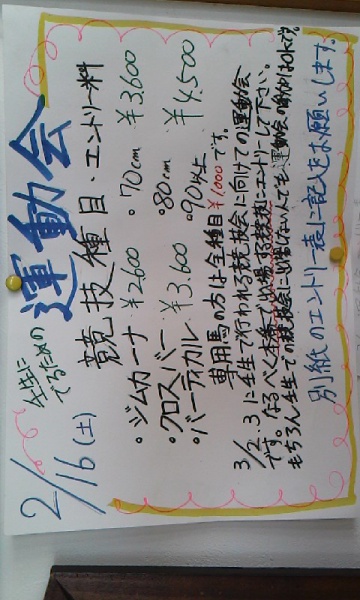 2/16(土)
壬生に
でるための
運動会
競技種目・エントリー料
・ジムカーナ ¥2600 ・70cm ¥3.600
・クロスバー ・80cm
・バーティカル ¥3.600 ・90以上 ¥4.500
専用馬の方は全種目¥1,000です。
3/2、3に壬生で行われる競技会に向けての運動会
です。なるべく本番で出場する競技にエントリーして下さい。
もちろん壬生での競技会に出場しない人でも運動会のみの参加はOKです。
別紙のエントリー表に記入をお願いします。